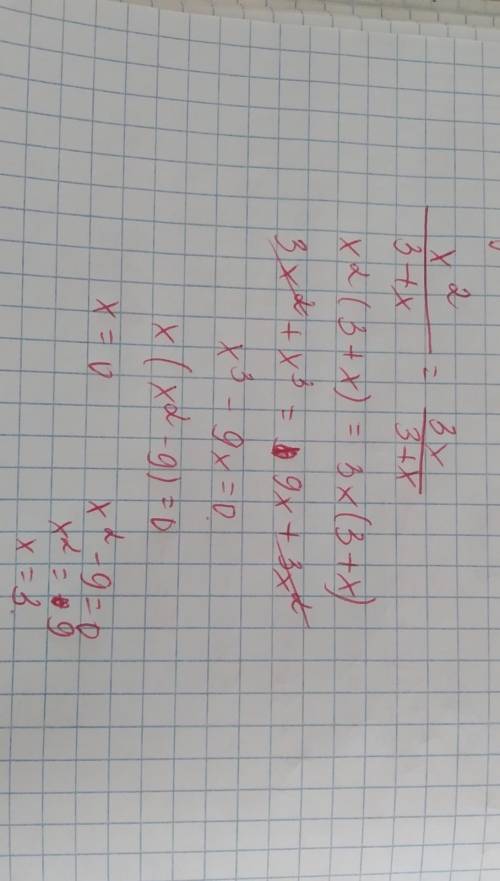 x² / 3+x = 3x / 3+x
x²(3+x) = 3x(3+x)
3x² + x³ = 9x + 3x²
x³ - 9x = 0
x(x² - 9) = 0
x = 0
x² - 9 = 0
x² = 9
x = 3